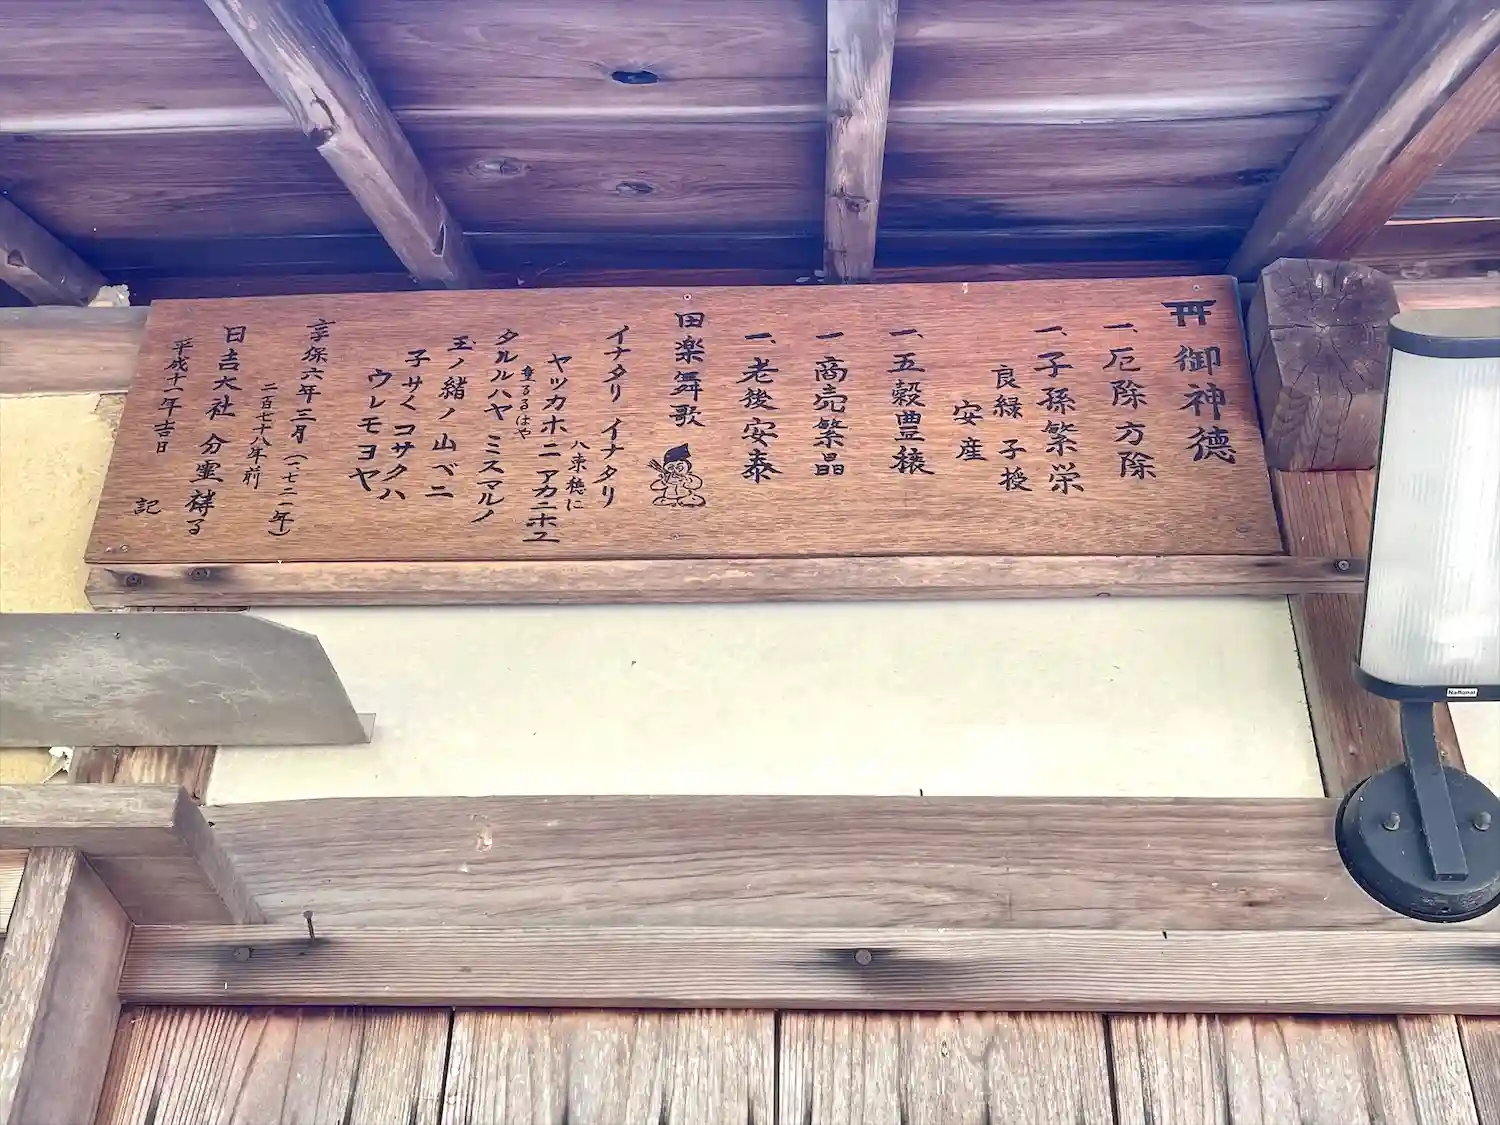 御神徳
一、厄除方除
一、子孫繁栄
良縁 子授
安産
一、五穀豊穣
一、商売繁昌
一、老後安泰
田楽舞歌
イナタリ イナタリ
八束穂に
ヤツカホニ アカニホユ
垂るるはや
タルルハヤ ミスマルノ
玉ノ緒ノ山ベニ
子サく コサクハ
ウレモヨヤ
享保六年三月(一七二一年)
二百七十八年前
日吉大社 分霊祥る
平成十一年吉日
記
National